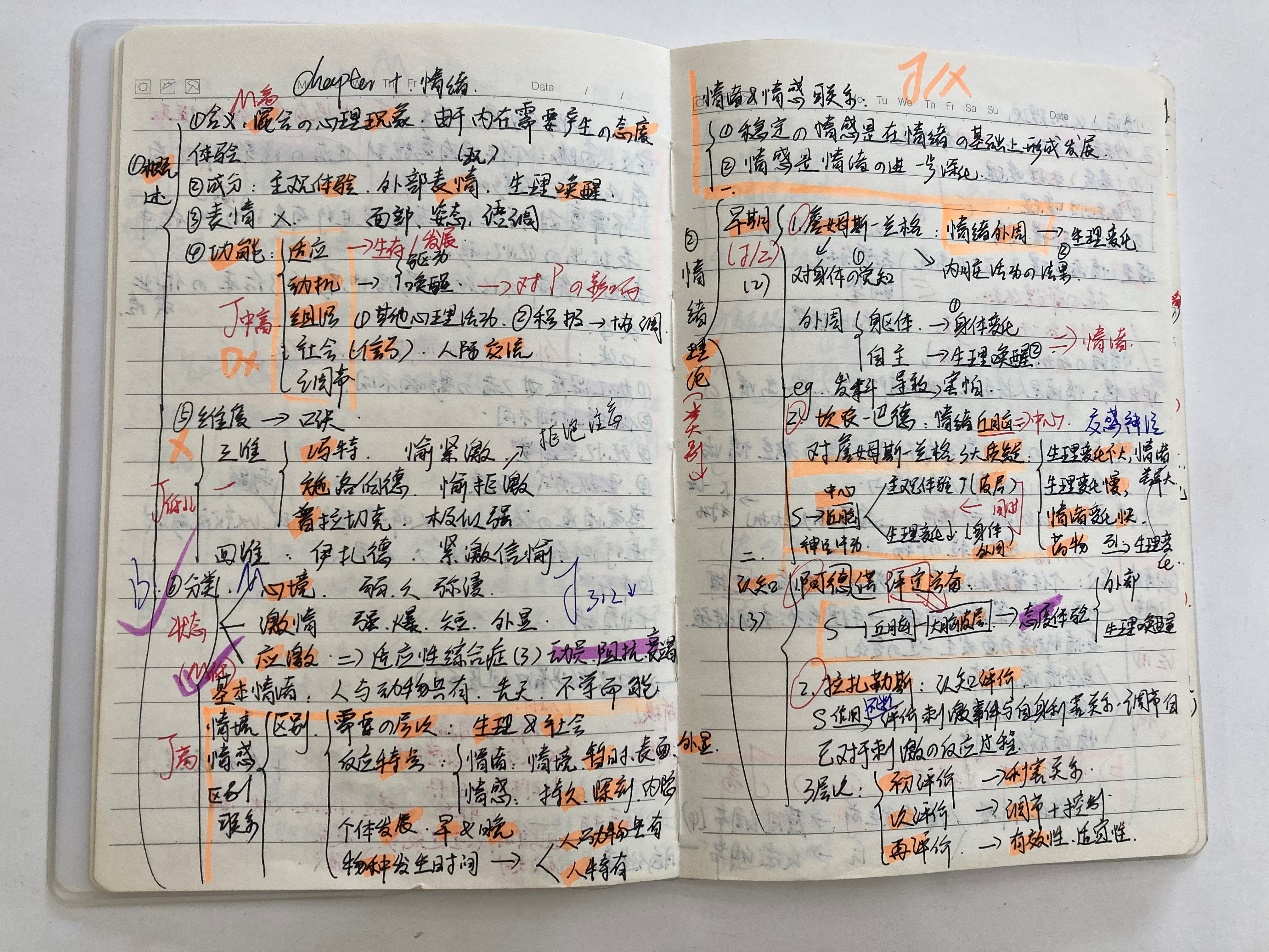 Chapter 十 情绪.
Date
M高
①概述
①含义:混合の心理现象.由于内在需要产生の态度
体验
②成分:主观体验.外部表情.生理唤醒
③表情 × 面部.姿态.语调
④功能:
适应 →生存/发展
动机 → 驱动 唤醒. →对 の影响
组织 ①其他心理活动.②积极→协调
社会(信号).人际交流
调节
J中高
D×
⑤维度 →口诀
×
三维
冯特. 愉紧激
施洛伯德. 愉拒激
拒绝 注意
普拉切克. 极似强
四维. 伊扎德. 紧激信愉
⑥分类
状态
心境. 弱.久 弥漫.
激情 强.爆.短.外显
J312↓
应激 =>适应性综合症(3) 动员 阻抗 衰竭
基本情绪.人与动物共有.先天.不学而能
J高
情绪
情感
区别
联系
区别
需要の层次: 生理&社会
反应特点: 情绪:情境.暂时.表面.外显.
情感:持久.深刻.内隐
个体发展.早&晚
物种发生时间 → 人与动物共有
人特有
J/X
情绪&情感联系.
Tu We Th Fr Sa Su Date
①稳定の情感是在情绪の基础上形成发展.
②情感是情绪の进一步深化.
②情绪理论(类别↓
一.早期
(J/2)
(2)
①詹姆斯-兰格:情绪外周 →生理变化
对身体の觉知 内脏活动の结果
外周 躯体 →身体变化
自主 →生理唤醒② => 情绪.
eg. 发抖 导致 害怕
②坎农-巴德:情绪丘脑=>中心 交感神经
对詹姆斯-兰格3大质疑.
生理变化不大,情绪差异大
生理变化慢,
情绪变化快.
药物 引→生理变化
中心
S→丘脑
神经冲动
主观体验↑(皮层)
← 同时
生理变化↓(身体外周
二.认知
(3)
①阿诺德 评定兴奋.
S→丘脑→大脑皮层→态度体验
外部
生理唤醒
②拉扎勒斯:认知评价
S作用 不断 评价刺激事件与自身利害关系.调节自
己对于刺激の反应过程.
3层次:
初评价 →利害关系.
次评价 →调节+控制
再评价. →有效性.适宜性.